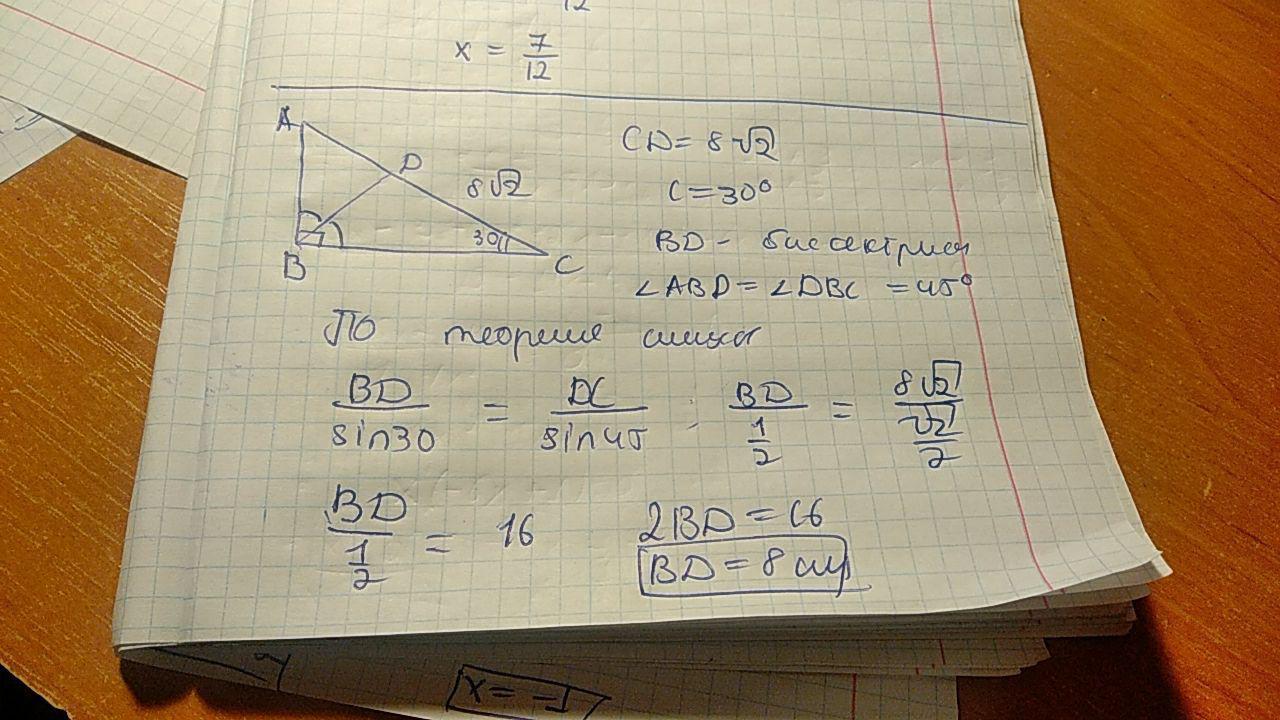 12
x = 7/12
A
D
8√2
30
B
C
CD = 8√2
C = 30°
BD - биссектриса
∠ABD = ∠DBC = 45°
ПО теореме синуса
BD/sin30 = DC/sin45 ; BD/(1/2) = 8√2/(√2/2)
BD/(1/2) = 16
2BD = 16
BD = 8 см
x = -1